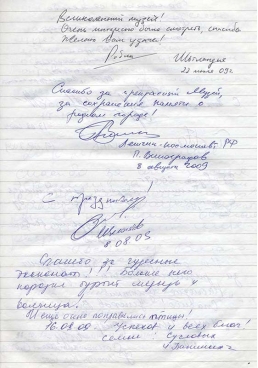 Великолепный музей!
Очень интересно было смотреть, спасибо
Желаю Вам удачи!
Шотландия
23 июля 09г.
Спасибо за прекрасный Музей,
за сохранение памяти о
родном городе!
Летчик-космонавт РФ
П. Виноградов
8 августа 2009
С
8.08.09
Спасибо за чудесные
экспонаты!!! Больше всего
и
больница!
И еще очень понравились птицы!
16.08.09. Успехов и всех благ!
семья Сусловых